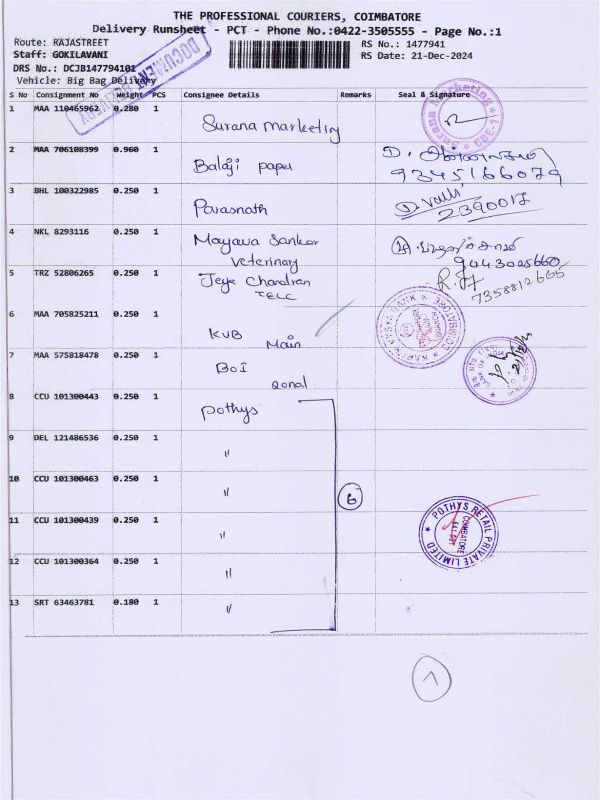 THE PROFESSIONAL COURIERS, COIMBATORE
Delivery Runsheet - PCT - Phone No.:0422-3505555 - Page No.:1
Route: RAJASTREET
Staff: GOKILAVANI
DRS No.: DCJB147794101
Vehicle: Big Bag Delivery
RS No.: 1477941
RS Date: 21-Dec-2024
DOCUMENT DELIVERY
S No Consignment No Weight PCS Consignee Details Remarks Seal & Signature
1 MAA 110465962 0.280 1 Surana marketing
Surana Marketing CBE-1
2 MAA 706108399 0.960 1 Balaji paper
9345166079
3 BHL 100322985 0.250 1 Parasnath D. Valli
2390017
4 NKL 8293116 0.250 1 Mayava Sankar
Veterinary
9043025660
5 TRZ 52806265 0.250 1 Jeya Chandran
TELC
7358812665
6 MAA 705825211 0.250 1 KVB Main
KARUR VYSYA BANK COIMBATORE
7 MAA 575818478 0.250 1 BOI
zonal
8 CCU 101300443 0.250 1 pothys
9 DEL 121486536 0.250 1 "
10 CCU 101300463 0.250 1 "
6
11 CCU 101300439 0.250 1 "
POTHYS RETAIL PRIVATE LIMITED
COIMBATORE
641 001
12 CCU 101300364 0.250 1 "
13 SRT 63463781 0.180 1 "
7